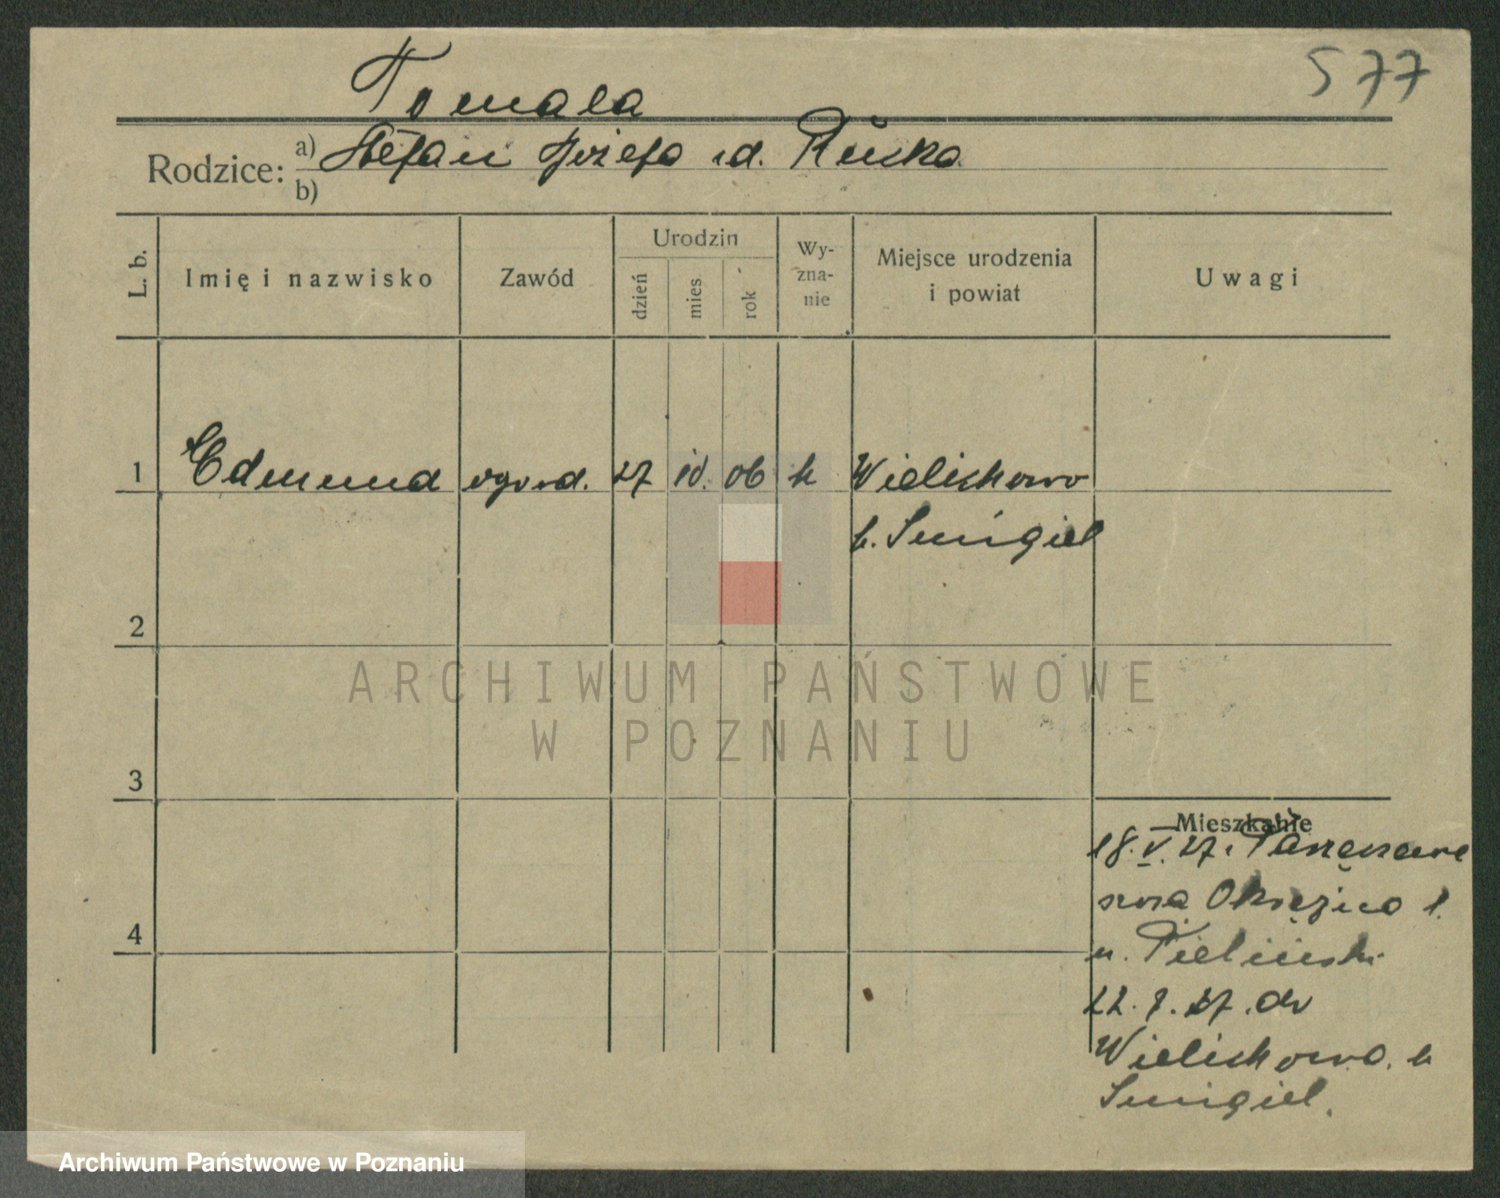 577
Tomala
Rodzice: a) Stefan Józefa d.
b)
L. b.
Imię i nazwisko
Zawód
Urodzin
dzień
mies
rok
Wy-
zna-
nie
Miejsce urodzenia
i powiat
Uwagi
1 Edmund ogrod. 27 10. 06 k Wielichowo
p. Śmigiel
2
3
4
Mieszkanie
18.V.27.
Okrężna 1.
u. Zieliński
22. 8. 27. do
Wielichowo. k
Śmigiel.
ARCHIWUM PAŃSTWOWE
W POZNANIU
Archiwum Państwowe w Poznaniu